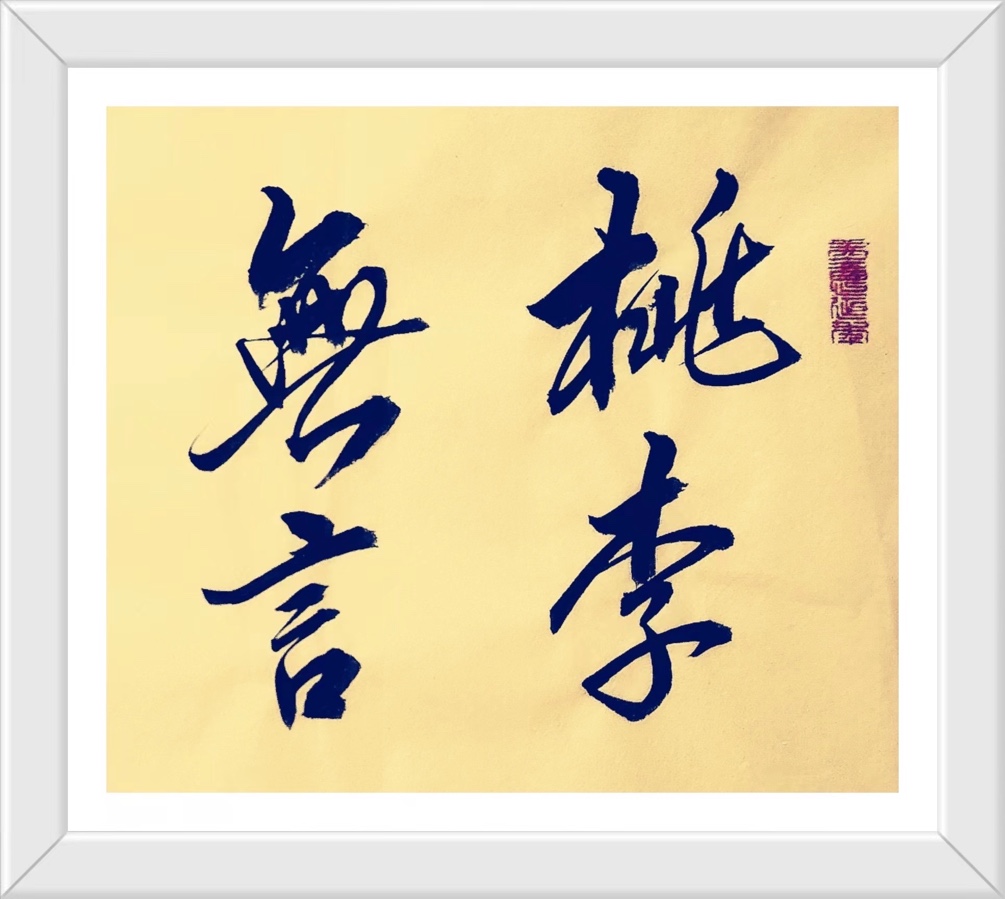 桃李
無言